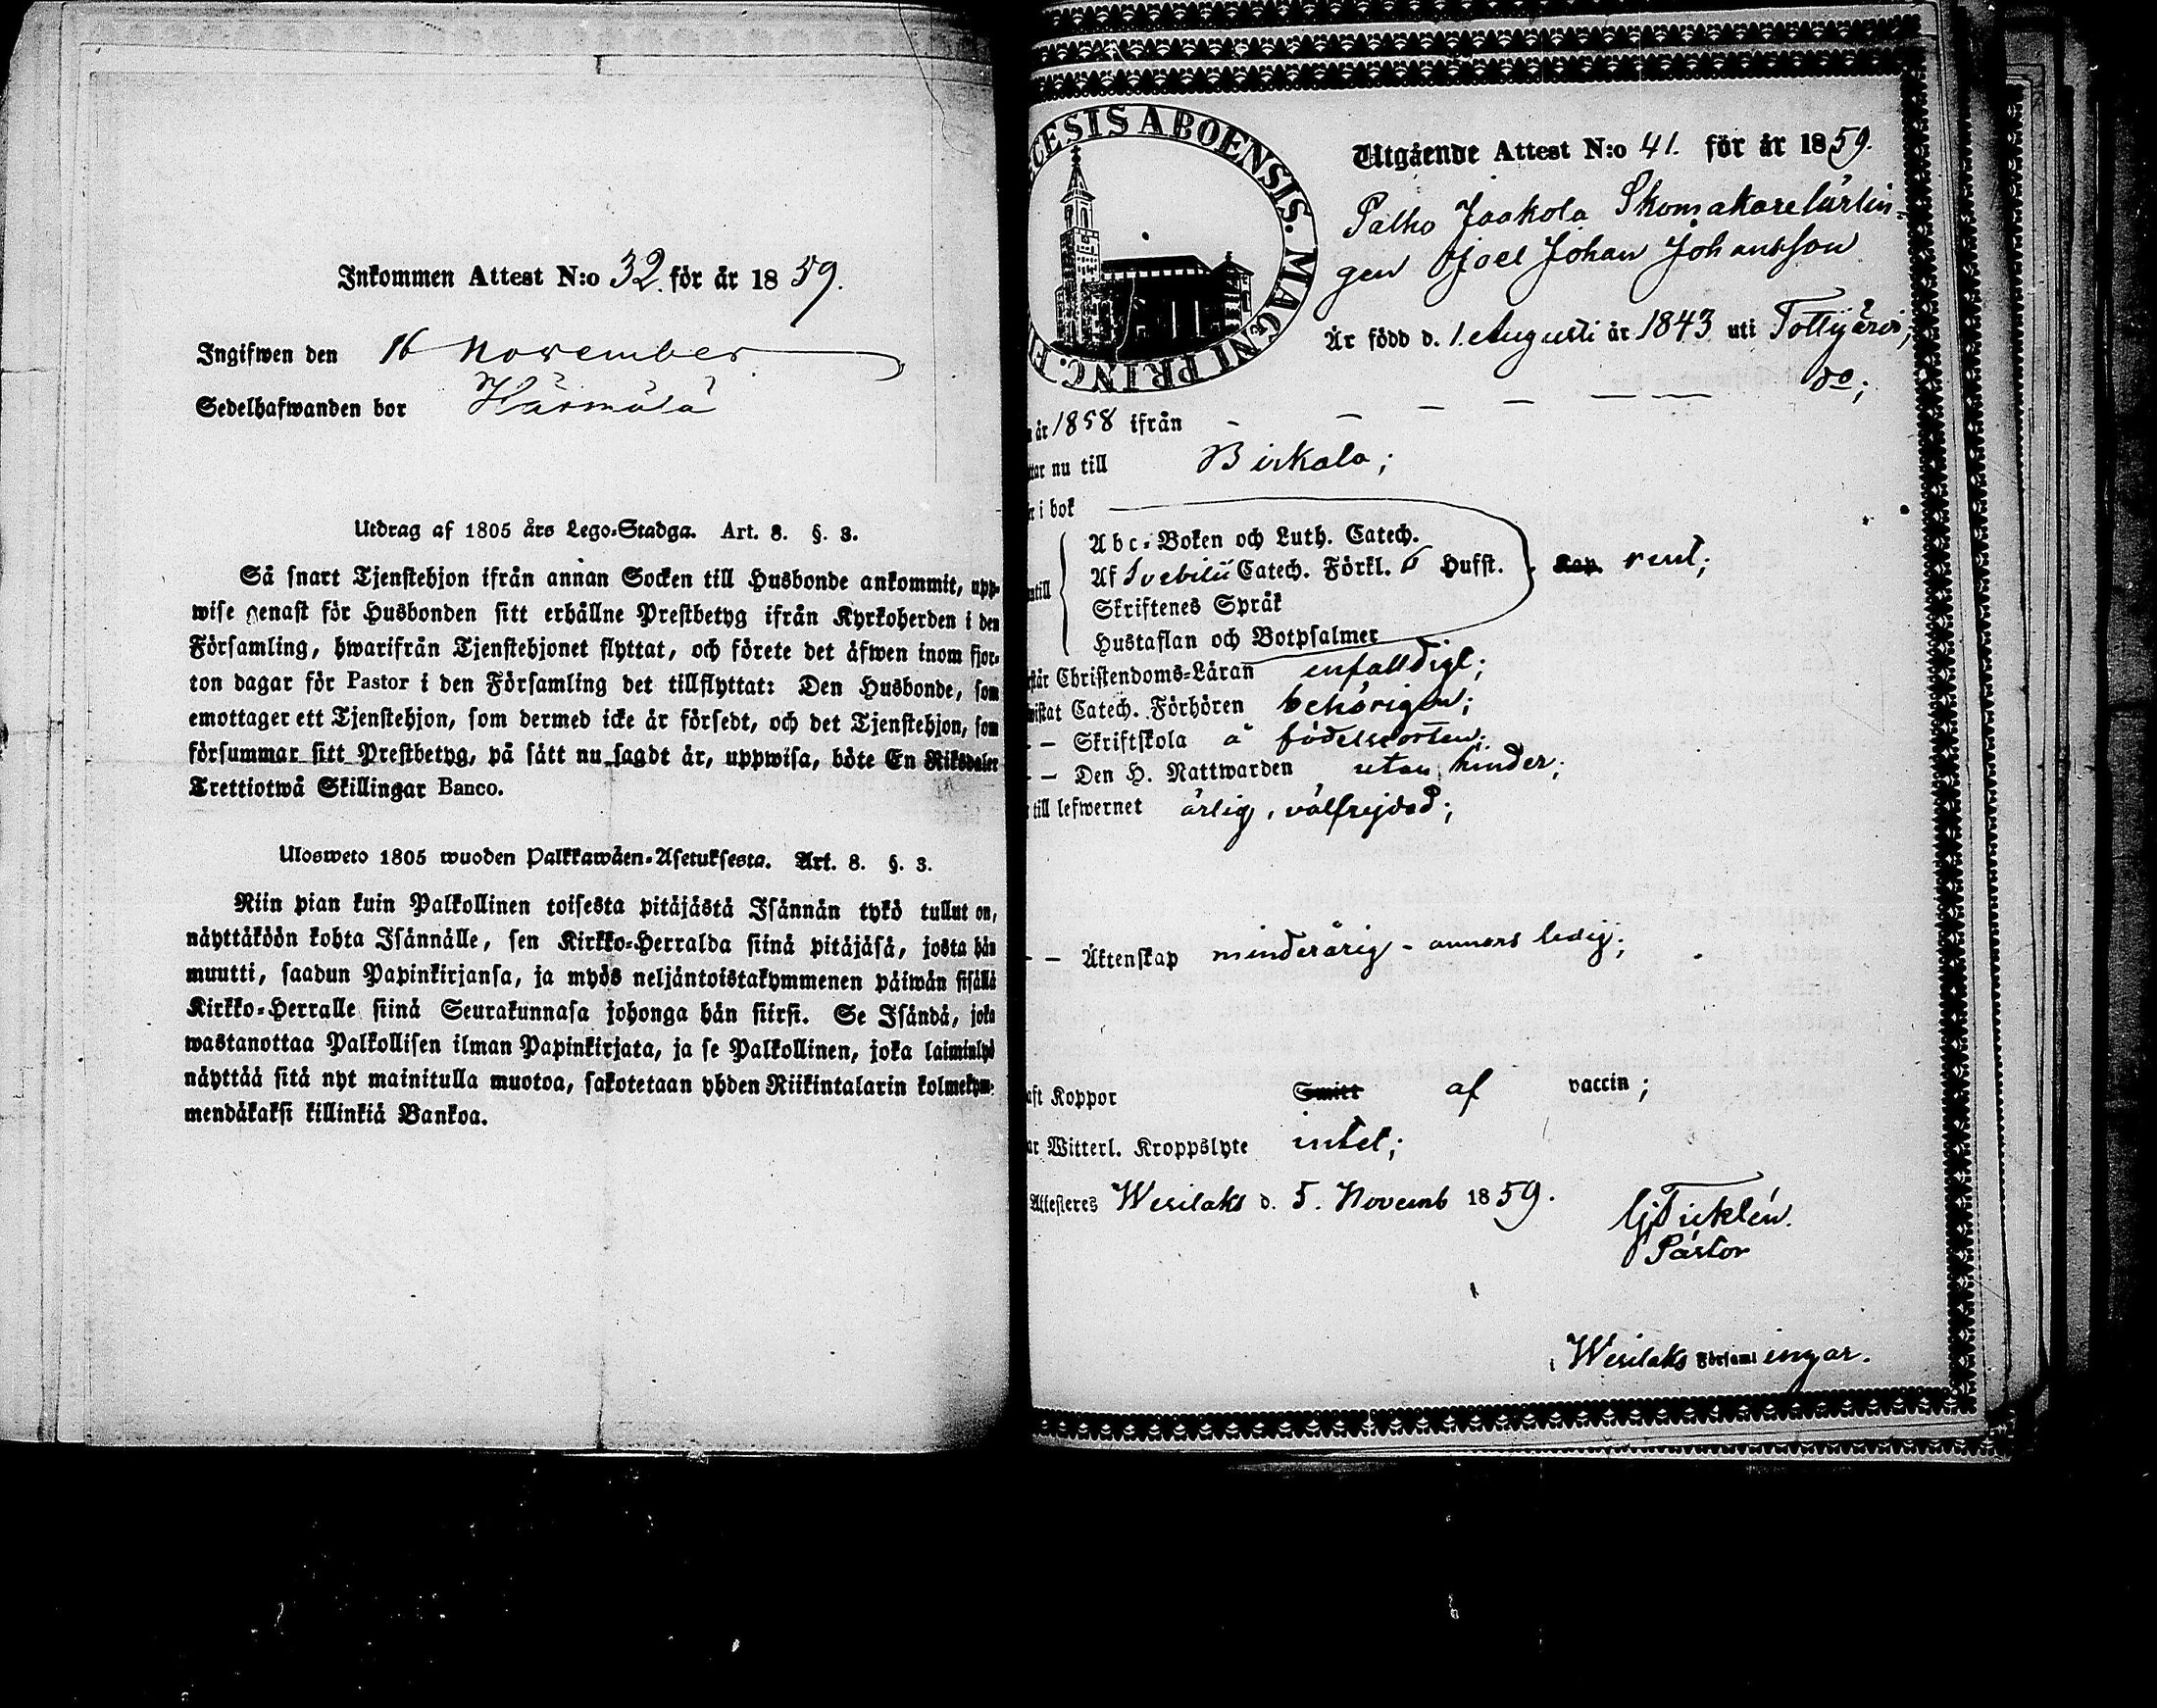 Inkommen Attest N:o 32. för år 1859.
Ingifwen den 16 November
Sedelhafwanden bor Härmälä
Utdrag af 1805 års Lego-Stadga. Art. 8. §. 3.
Så snart Tjenstehjon ifrån annan Socken till Husbonde ankommit, upp-
wise genast för Husbonden sitt erhållne Prestbetyg ifrån Kyrkoherden i den
Församling, hwarifrån Tjenstehjonet flyttat, och förete det äfwen inom fjor-
ton dagar för Pastor i den Församling det tillflyttat: Den Husbonde, som
emottager ett Tjenstehjon, som dermed icke är försedt, och det Tjenstehjon, som
försummar sitt Prestbetyg, på sätt nu sagdt är, uppwisa, böte En Riksdaler
Trettiotwå Skillingar Banco.
Ulosweto 1805 wuoden Palkkawäen-Asetuksesta. Art. 8. §. 3.
Niin pian kuin Palkollinen toisesta pitäjästä Isännän tykö tullut on,
näyttäköön kohta Isännälle, sen Kirkko-Herralda siinä pitäjäsä, josta hän
muutti, saadun Papinkirjansa, ja myös neljäntoistakymmenen päiwän sisällä
Kirkko-Herralle siinä Seurakunnasa johonga hän siirsi. Se Isändä, joka
wastanottaa Palkollisen ilman Papinkirjata, ja se Palkollinen, joka laiminlyö
näyttää sitä nyt mainitulla muotoa, sakotetaan yhden Riikintalarin kolmekym-
mendäkaksi killinkiä Bankoa.
CESIS ABOENSIS. MAGNI PRINC. F
Utgående Attest N:o 41. för år 1859.
Palho Jaakola Skomakarelärlin-
gen Joel Johan Johansson
Är född d. 1. Augusti år 1843 uti Tottijärvi,
år 1858 ifrån - - - - - - do;
nu till Birkala;
i bok
Abc-Boken och Luth. Catech.
Af Svebilii Catech. Förkl. 6 Hufst. Kap. rent;
Skriftenes Språk
Hustaflan och Botpsalmer
Christendoms-Läran enfalldigt;
Catech. Förhören behörigen;
- - Skriftskola å födelseorten;
- - Den H. Nattwarden utan hinder;
till lefwernet ärlig, välfrejdad;
- - Äktenskap minderårig - annars ledig;
Koppor Smitt af vaccin;
Witterl. Kroppslyte intet;
Attesteres Wesilaks d. 5. Novemb 1859.
Pastor
i Wesilaks Församlingar.